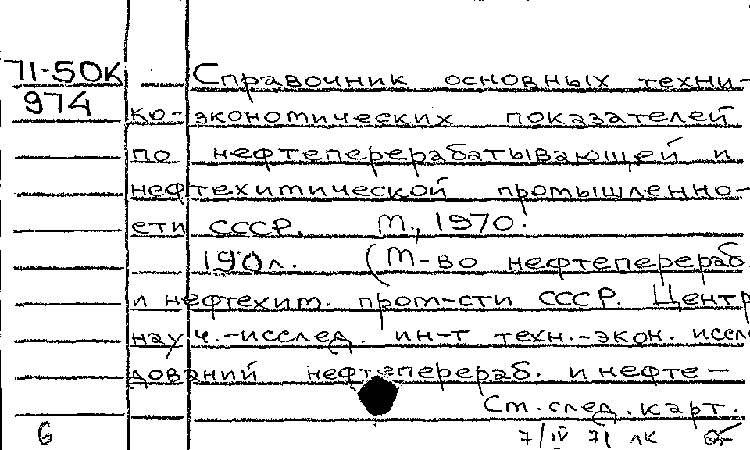 71-50К Справочник основных техни-
974 ко-экономических показателей
по нефтеперерабатывающей и
нефтехимической промышленно-
сти СССР. М., 1970.
190л. (М-во нефтеперераб.
и нефтехим. пром-сти СССР. Центр.
науч.-исслед. ин-т техн.-экон. иссле
дований нефтеперераб. и нефте-
См. след. карт.
6 7/IV 71 лк